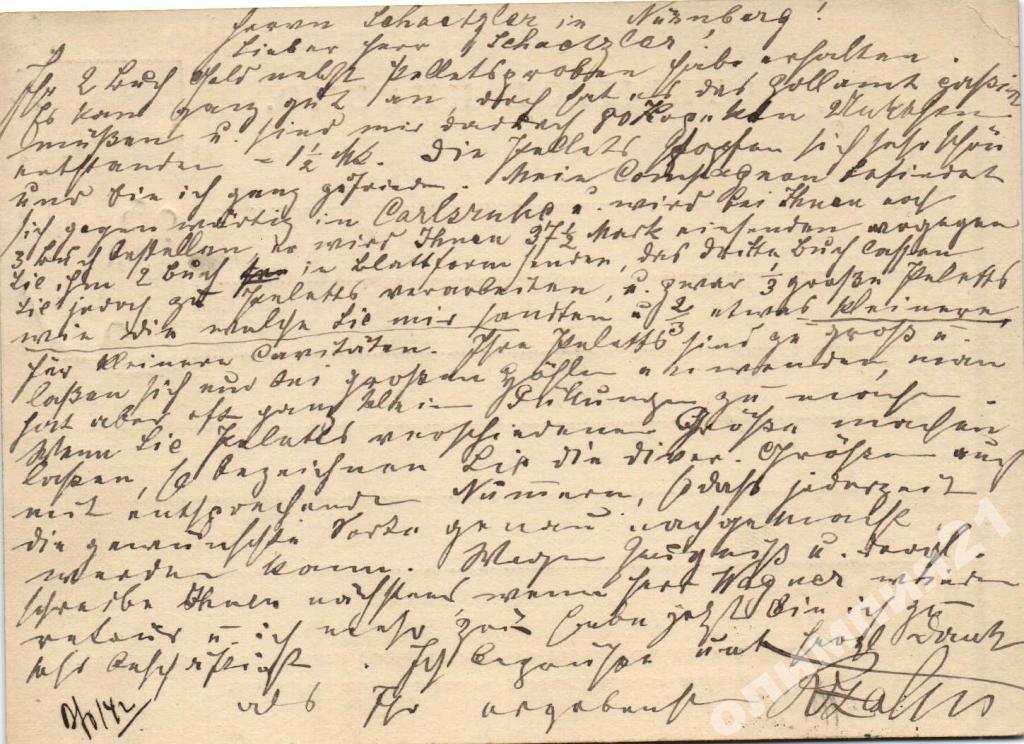 Herrn Schaetzler in Nürnberg!
Lieber Herr Schaetzler,
Ihr 2 Buch Gold nebst Pelletsproben habe erhalten.
Es kam ganz gut an, doch hat es das Zollamt passiren
müßen u. sind mir dadurch 80 Kopeken Unkosten
entstanden = 1½ Mk. Die Pellets stopfen sich sehr schön
und bin ich ganz zufrieden. Mein Compagnon befindet
sich gegenwärtig in Carlsruhe u. wird bei Ihnen noch
3 Buch bestellen er wird Ihnen 37½ Mark einsenden wogegen
Sie ihm 2 Buch in Blattform senden, das dritte Buch lassen
Sie jedoch zu Peletts verarbeiten, u. zwar ⅓ große Peletts
wie die welche Sie mir sandten u ⅔ etwas kleinere
für kleinere Cavitäten. Ihre Peletts sind zu groß u.
laßen sich nur bei großen Höhlen anwenden, man
hat aber oft ganz klein Füllungen zu machen.
Wenn Sie Peletts verschiedener Größe machen
laßen, so bezeichnen Sie die diver. Größen auch
mit entsprechende Nummern, so dass jederzeit
die gewünschte Sorte genau nachgemacht
werden kann. Wegen Zeugniß u. dergl.
schreibe Ihnen nächstens, wenn Herr Wagner wieder
retour u. ich mehr Zeit habe jetzt bin ich zu
sehr beschäftigt. Ich begrüße mit herzl Dank
als Ihr ergebenst
олимпия21